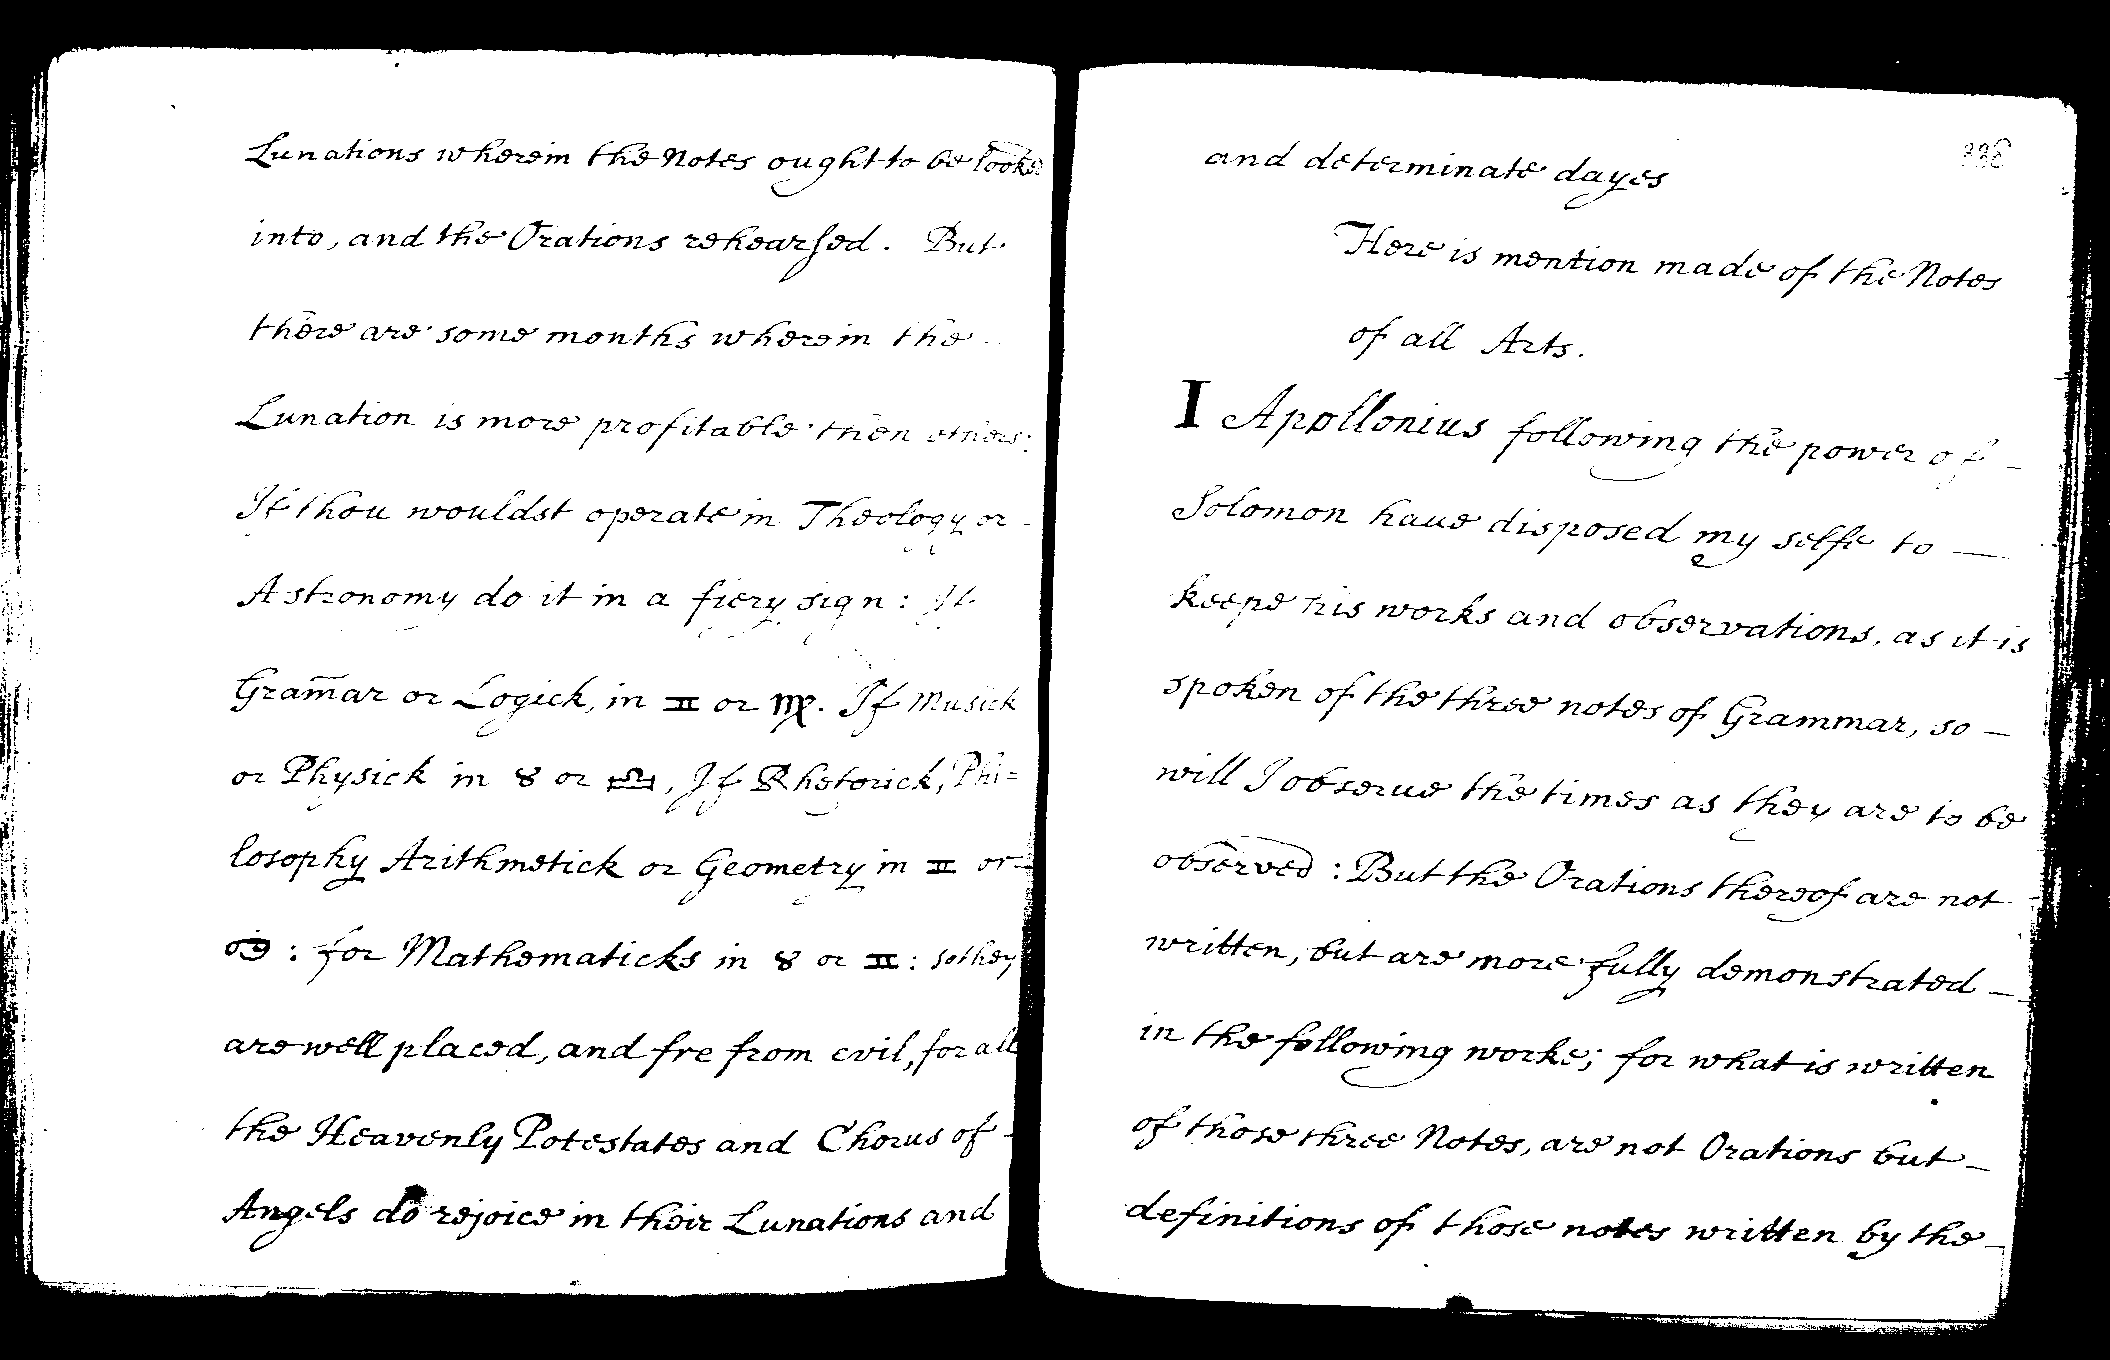 Lunations wherein the Notes ought to be looked
into, and the Orations rehearsed. But
there are some months wherein the
Lunation is more profitable then others:
If thou wouldst operate in Theology or
Astronomy do it in a fiery sign: If
Gram̄ar or Logick, in ♊ or ♍. If Musick
or Physick in ♉ or ♎, If Rhetorick, Phi=
losophy Arithmetick or Geometry in ♊ or
♋: for Mathematicks in ♉ or ♊: so they
are well placed, and fre from evil, for all
the Heavenly Potestates and Chorus of
Angels do rejoice in their Lunations and
and determinate dayes
Here is mention made of the Notes
of all Arts.
I Apollonius following the power of -
Solomon have disposed my selfe to —
keepe his works and observations, as it is
spoken of the three notes of Grammar, so —
will I observe the times as they are to be
observed: But the Orations thereof are not
written, but are more fully demonstrated —
in the following worke; for what is written
of those three Notes, are not Orations but —
definitions of those notes written by the —